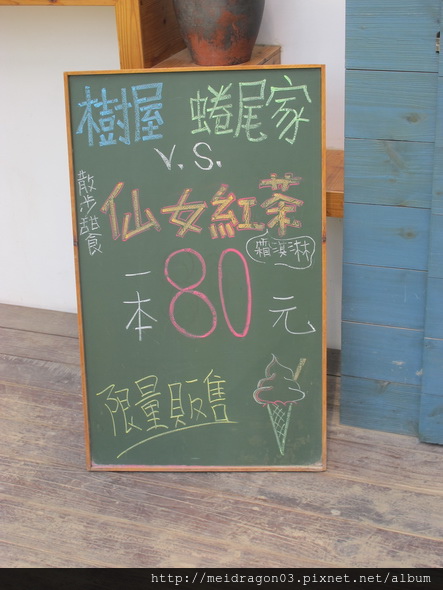 樹屋 蜷尾家
V.S.
散步甜食
仙女紅茶
霜淇淋
一本80元
限量販售
http://meidragon03.pixnet.net/album